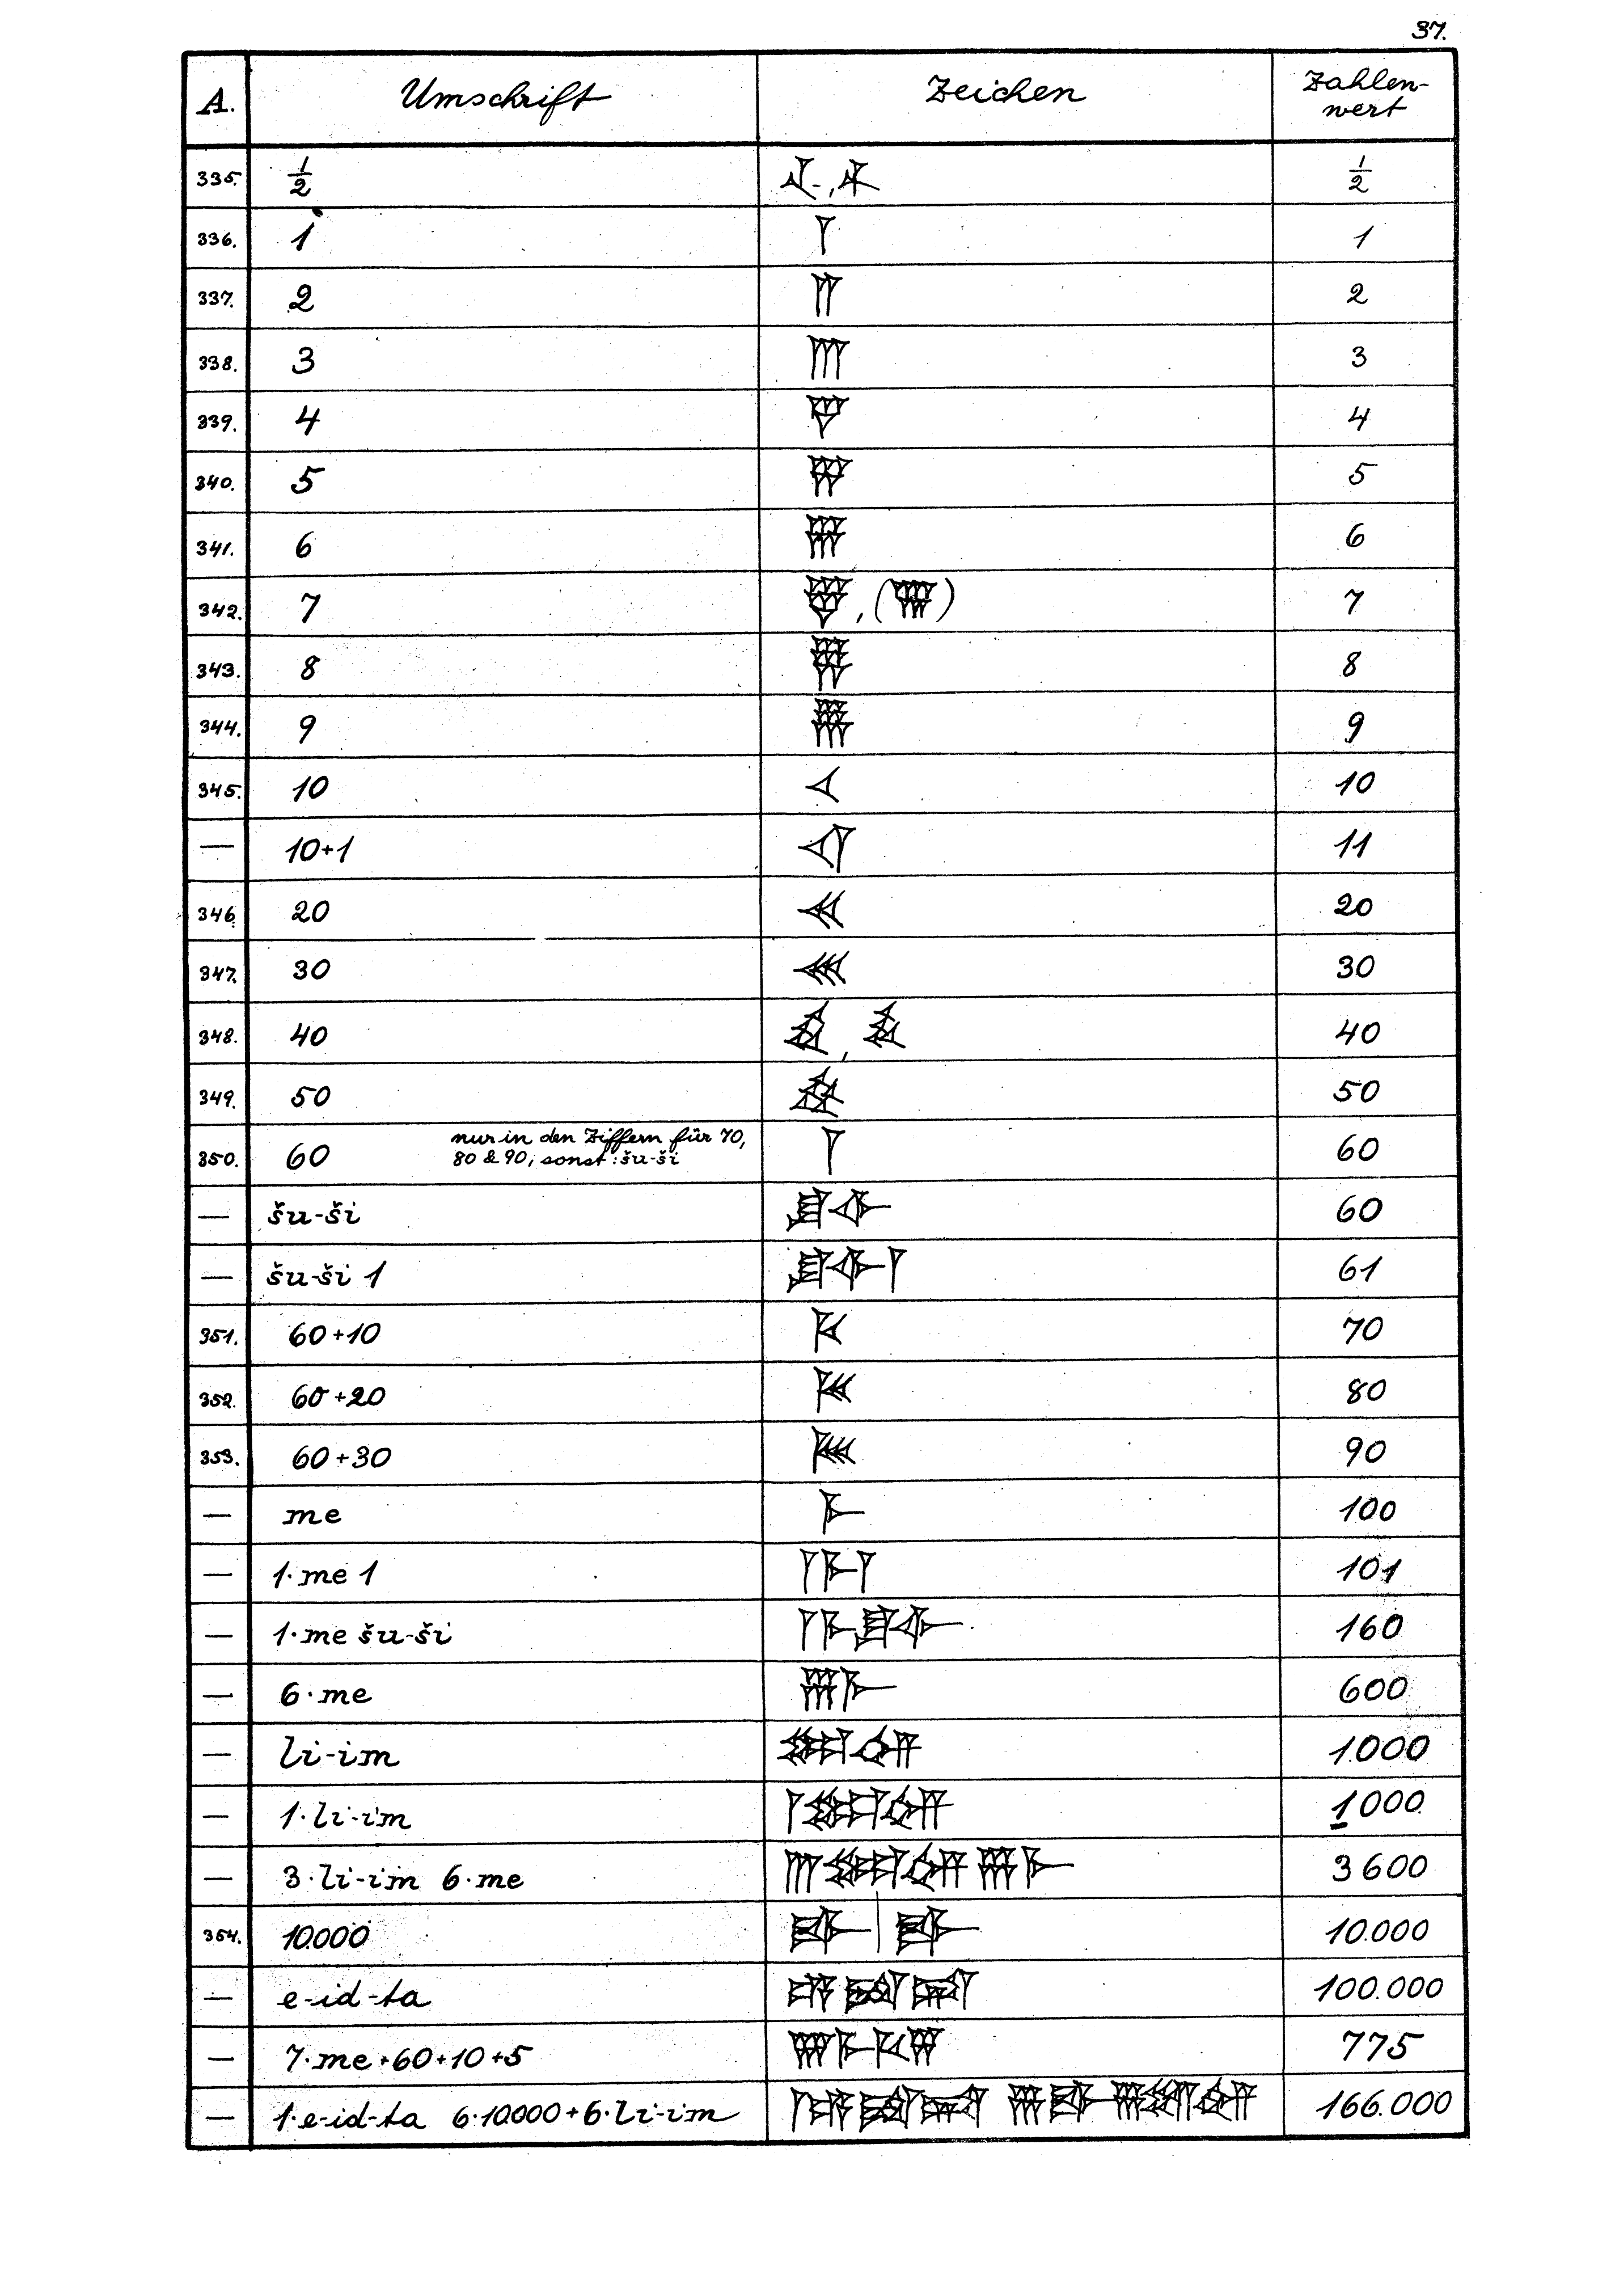 37.
A. Umschrift Zeichen Zahlen-
wert
335. ½ ½
336. 1 𒁹 1
337. 2 𒈫 2
338. 3 𒐈 3
339. 4 𒐉 4
340. 5 𒐊 5
341. 6 𒐋 6
342. 7 𒐌 7
343. 8 𒐍 8
344. 9 𒐎 9
345. 10 𒌋 10
— 10+1 𒌋𒁹 11
346. 20 𒌋𒌋 20
347. 30 𒌍 30
348. 40 𒐏 40
349. 50 𒐐 50
350. 60 nur in den Ziffern für 70, 𒁹 60
80 & 90; sonst: šu-ši
— šu-ši 𒋗𒅆 60
— šu-ši 1 𒋗𒅆𒁹 61
351. 60+10 𒁹𒌋 70
352. 60+20 𒁹𒌋𒌋 80
353. 60+30 𒁹𒌍 90
— me 𒈨 100
— 1·me 1 𒁹𒈨𒁹 101
— 1·me šu-ši 𒁹𒈨𒋗𒅆 160
— 6·me 𒐋𒈨 600
— li-im 𒇷𒅎 1000
— 1·li-im 𒁹𒇷𒅎 1000
— 3·li-im 6·me 𒐈𒇷𒅎 𒐋𒈨 3600
354. 10.000 10.000
— e-id-ta 𒂊𒀉𒋫 100.000
— 7·me+60+10+5 775
— 1·e-id-ta 6·10.000+6·li-im 166.000